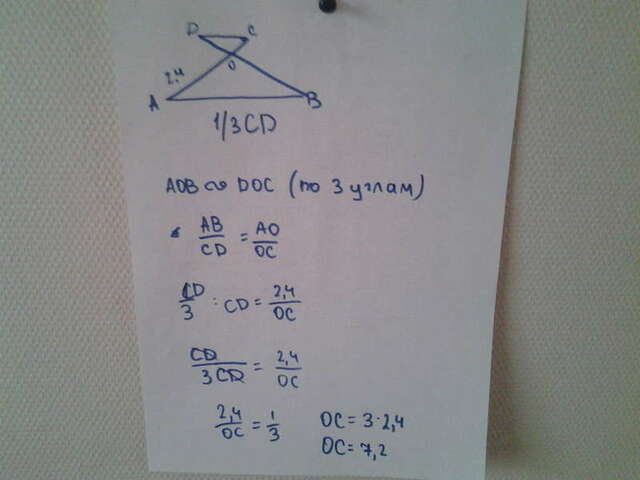 D C
O
2,4
A B
1/3CD
AOB ∾ DOC (по 3 углам)
AB/CD = AO/OC
CD/3 : CD = 2,4/OC
CD/3CD = 2,4/OC
2,4/OC = 1/3 OC = 3·2,4
OC = 7,2